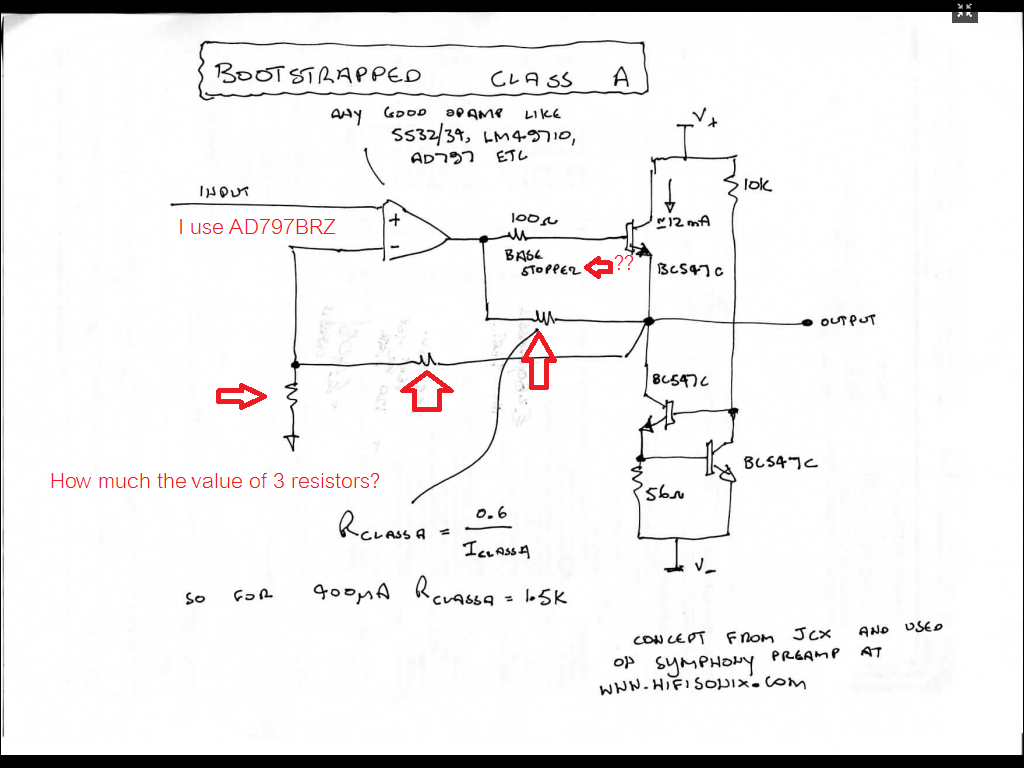 BOOTSTRAPPED CLASS A
ANY GOOD OPAMP LIKE
5532/34, LM49710,
AD797 ETC
V+
10K
INPUT
I use AD797BRZ
+
-
100Ω
≃12mA
BASE
STOPPER
??
BC547C
OUTPUT
BC547C
BC547C
56Ω
How much the value of 3 resistors?
RCLASSA = 0.6
ICLASSA
V-
SO FOR 400µA RCLASSA = 1.5K
CONCEPT FROM JCX AND USED
ON SYMPHONY PREAMP AT
WWW.HIFISONIX.COM